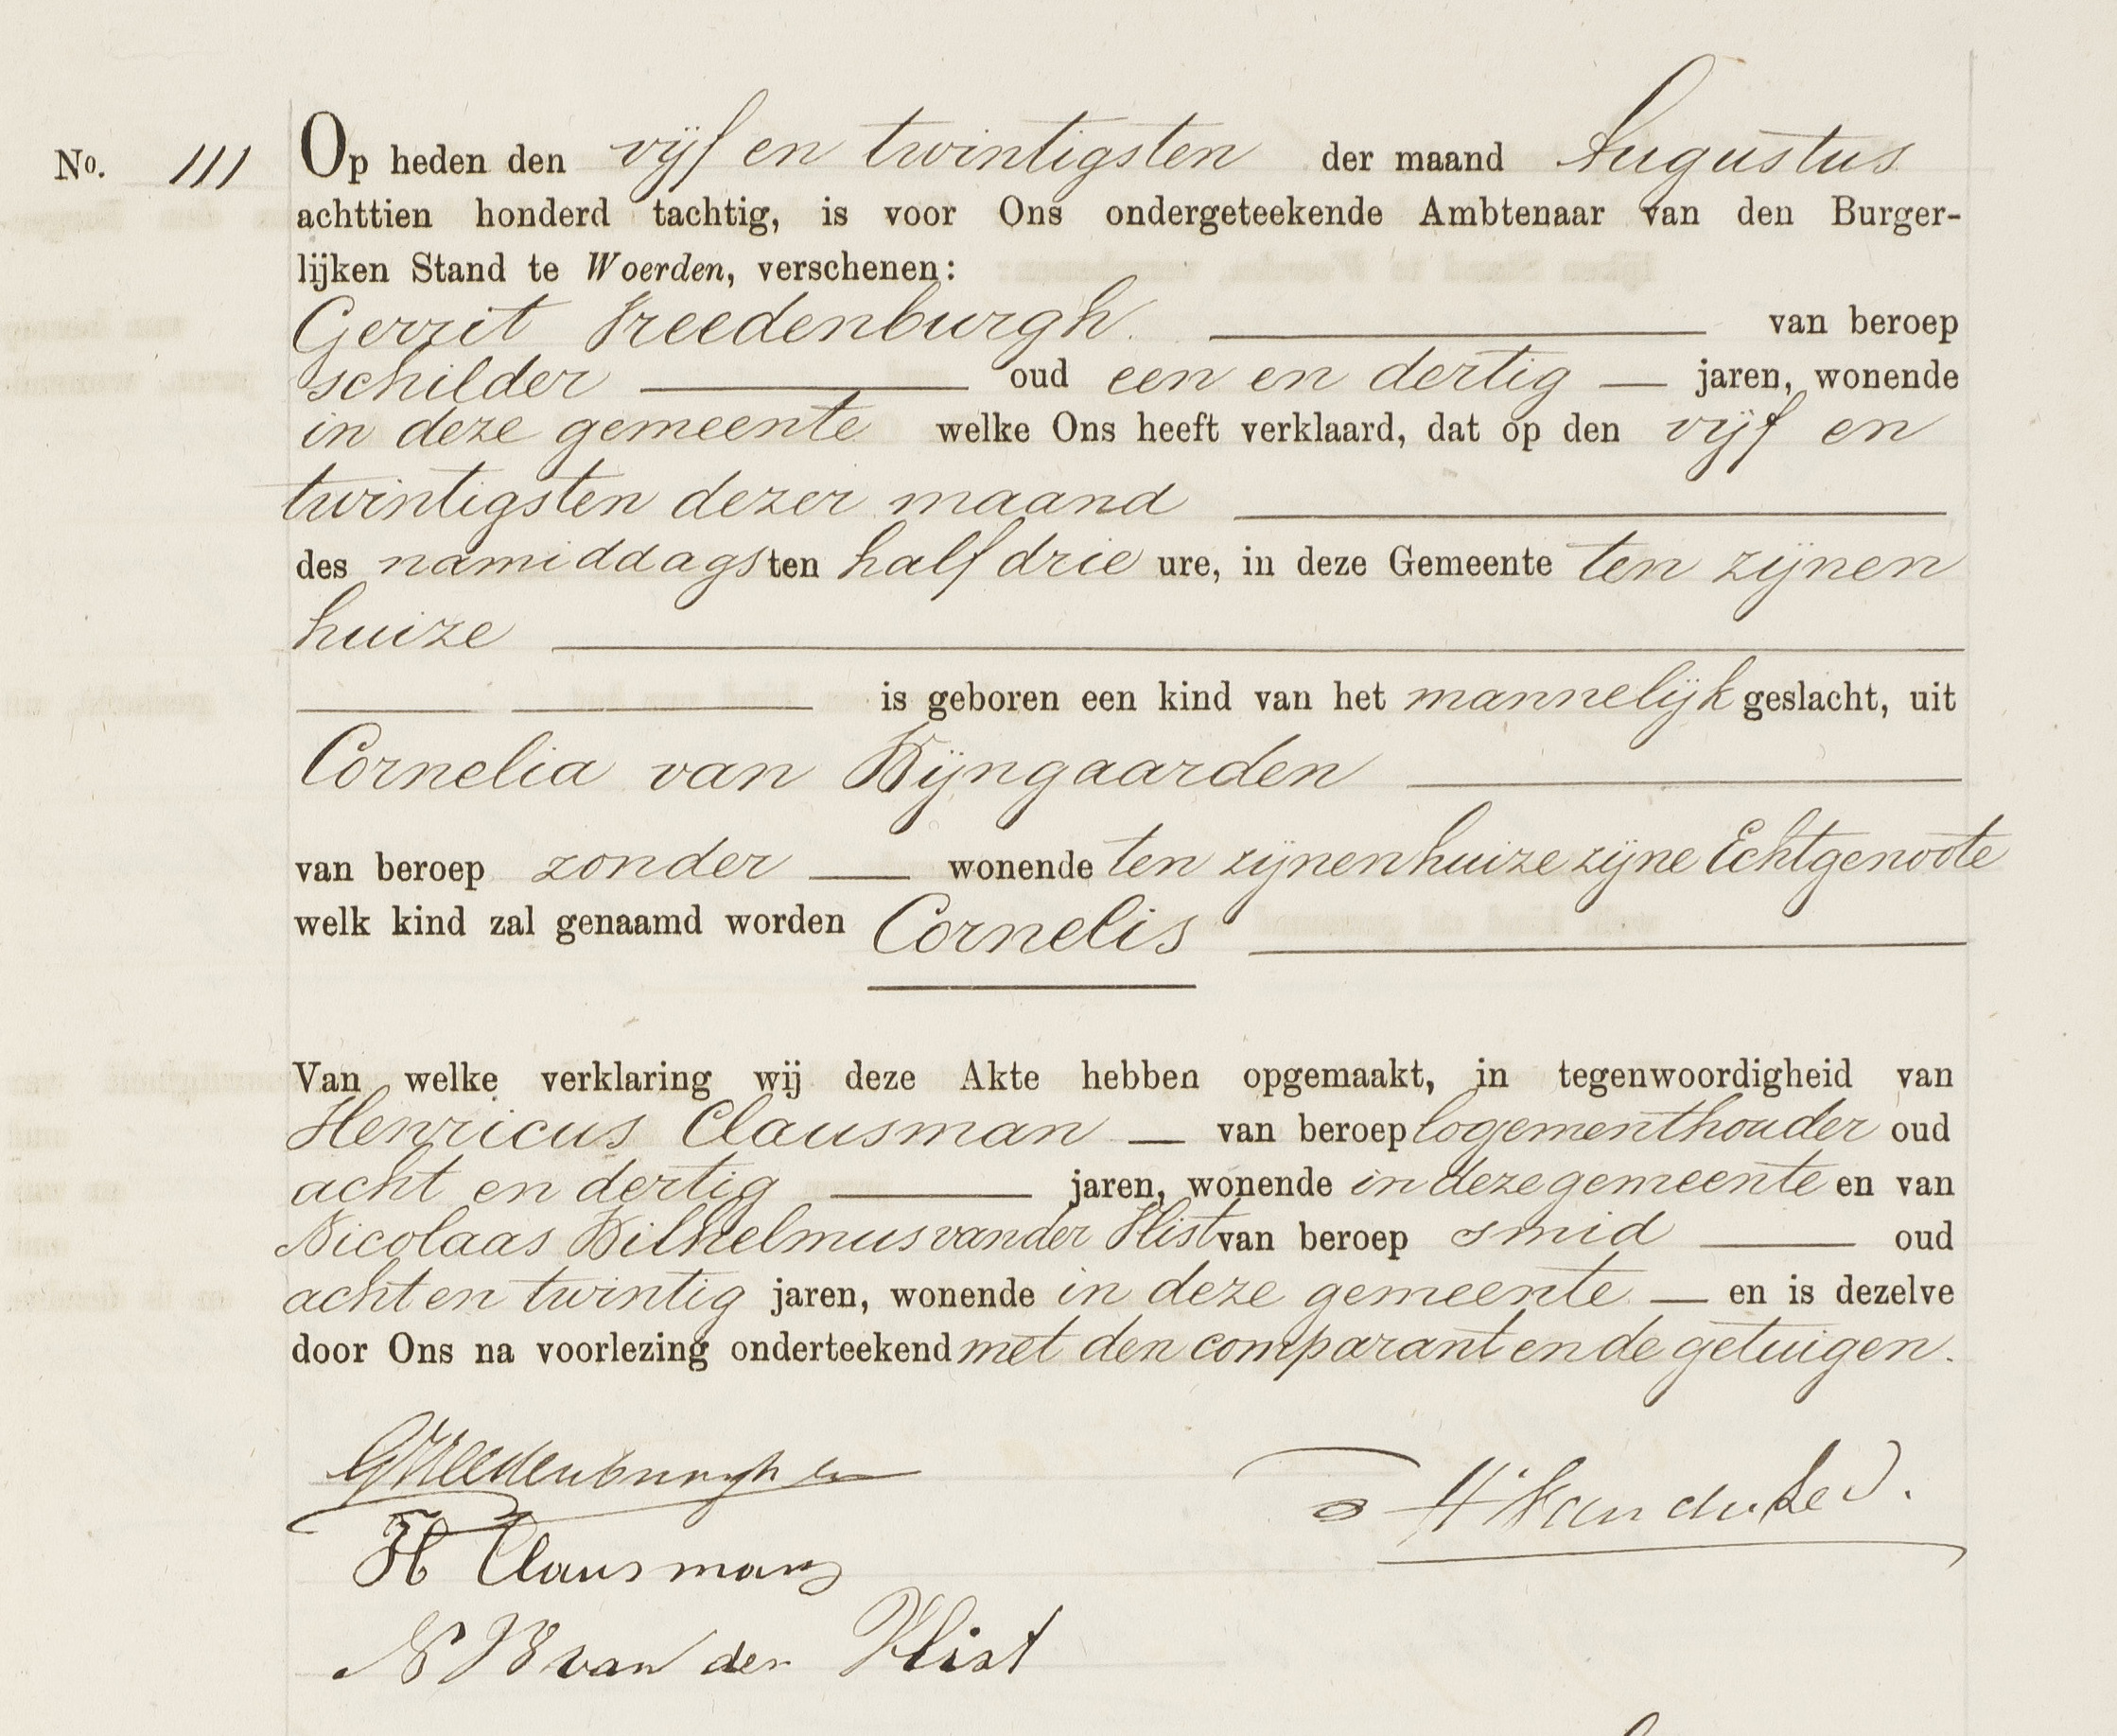 No. 111 Op heden den vijf en twintigsten der maand Augustus
achttien honderd tachtig, is voor Ons ondergeteekende Ambtenaar van den Burger-
lijken Stand te Woerden, verschenen:
Gerrit Vreedenburgh. van beroep
schilder oud een en dertig jaren, wonende
in deze gemeente welke Ons heeft verklaard, dat op den vijf en
twintigsten dezer maand
des namiddags ten half drie ure, in deze Gemeente ten zijnen
huize
is geboren een kind van het mannelijk geslacht, uit
Cornelia van Wijngaarden
van beroep zonder wonende ten zijnen huize zijne Echtgenoote
welk kind zal genaamd worden Cornelis
Van welke verklaring wij deze Akte hebben opgemaakt, in tegenwoordigheid van
Henricus Clausman van beroep logementhouder oud
acht en dertig jaren, wonende in deze gemeente en van
Nicolaas Wilhelmus van der Vlist van beroep smid oud
acht en twintig jaren, wonende in deze gemeente en is dezelve
door Ons na voorlezing onderteekend met den comparant en de getuigen.
GVreedenburgh
H Clausmans
N W van der Vlist